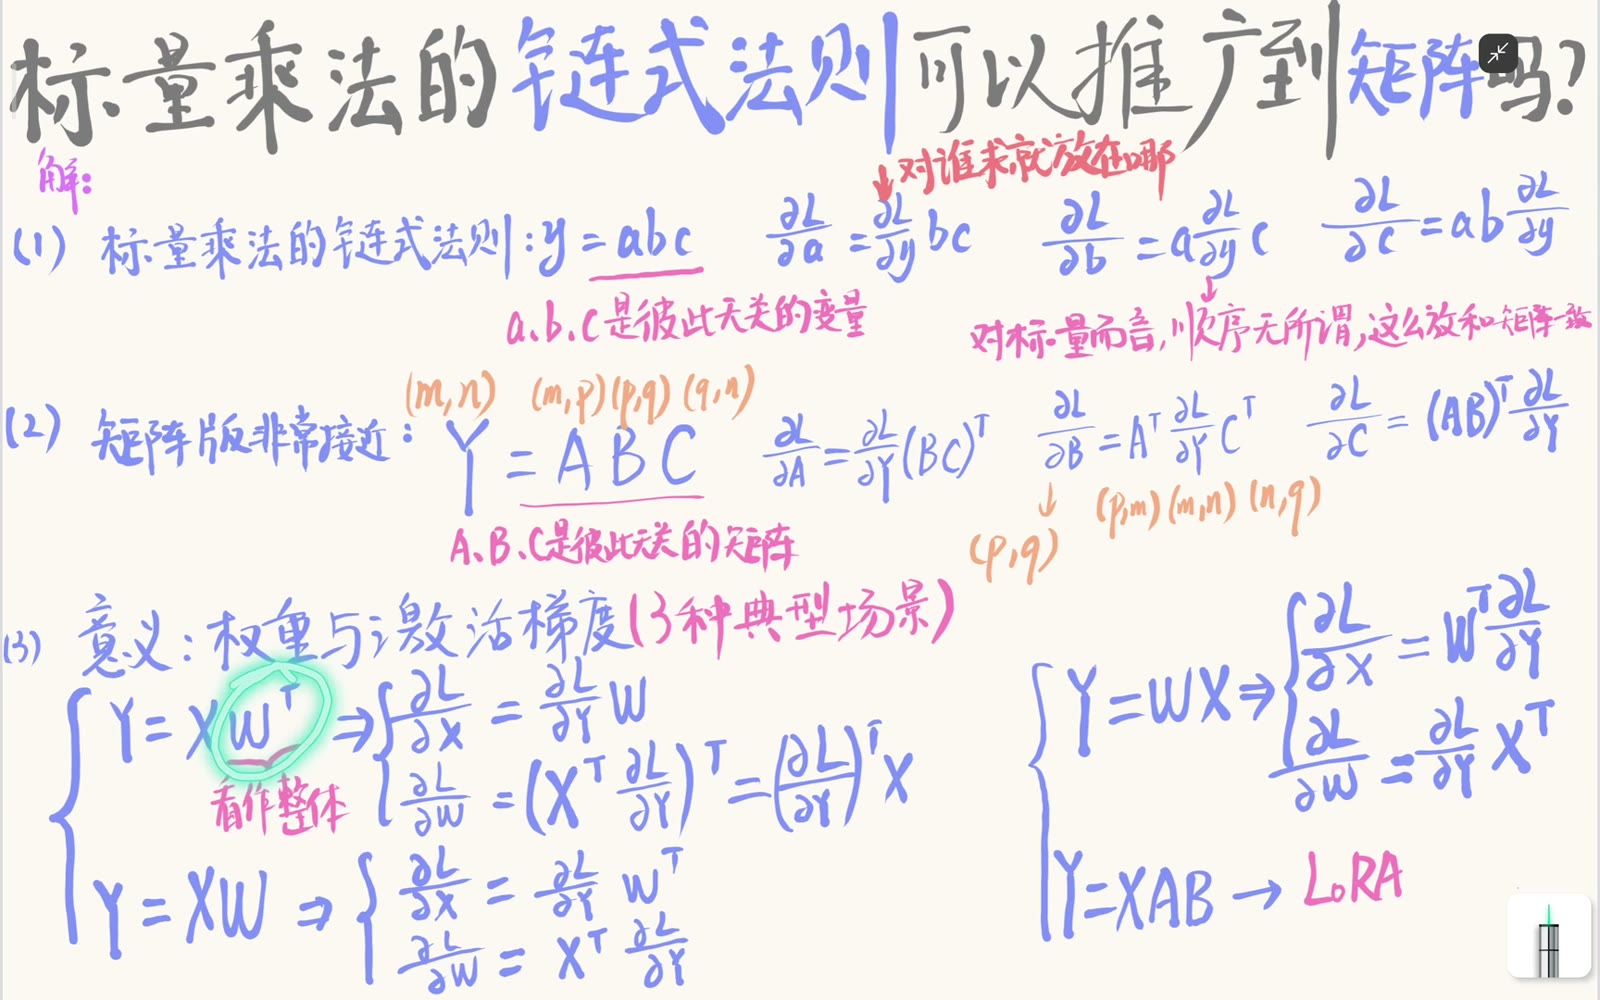 标量乘法的链式法则可以推广到矩阵吗?
解:
对谁求就放在哪
(1) 标量乘法的链式法则: y = abc ∂L/∂a = ∂L/∂y bc ∂L/∂b = a ∂L/∂y c ∂L/∂c = ab ∂L/∂y
a.b.c是彼此无关的变量
对标量而言,顺序无所谓,这么放和矩阵一致
(m,n) (m,p) (p,q) (q,n)
(2) 矩阵版非常接近: Y = ABC ∂L/∂A = ∂L/∂Y (BC)^T ∂L/∂B = A^T ∂L/∂Y C^T ∂L/∂C = (AB)^T ∂L/∂Y
A、B、C是彼此无关的矩阵
(p,q) (p,m) (m,n) (n,q)
(3) 意义: 权重与激活梯度(3种典型场景)
Y = XW^T ⇒ { ∂L/∂X = ∂L/∂Y W
∂L/∂W = (X^T ∂L/∂Y)^T = (∂L/∂Y)^T X
看作整体
Y = XW ⇒ { ∂L/∂X = ∂L/∂Y W^T
∂L/∂W = X^T ∂L/∂Y
Y = WX ⇒ { ∂L/∂X = W^T ∂L/∂Y
∂L/∂W = ∂L/∂Y X^T
Y = XAB → LoRA